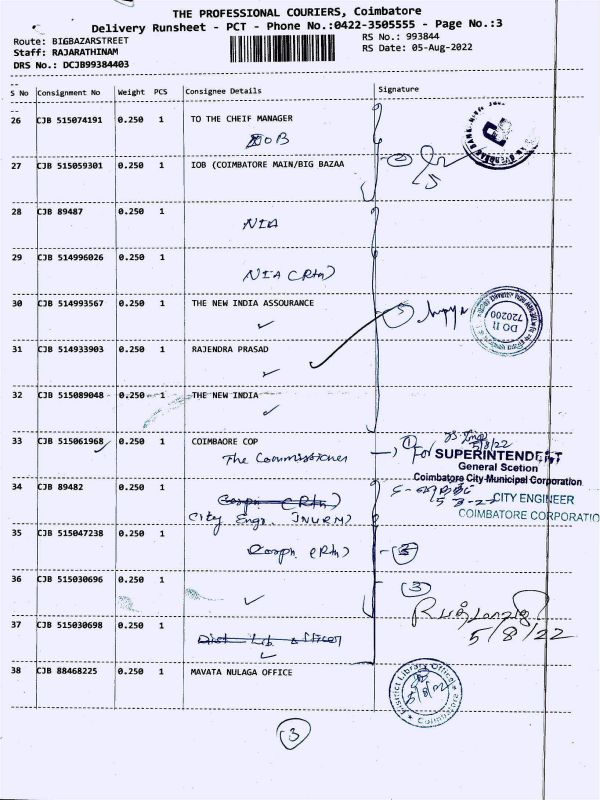 THE PROFESSIONAL COURIERS, Coimbatore
Delivery Runsheet - PCT - Phone No.:0422-3505555 - Page No.:3
Route: BIGBAZARSTREET
RS No.: 993844
Staff: RAJARATHINAM
RS Date: 05-Aug-2022
DRS No.: DCJB99384403
S No Consignment No Weight PCS Consignee Details Signature
26 CJB 515074191 0.250 1 TO THE CHEIF MANAGER
IOB
27 CJB 515059301 0.250 1 IOB (COIMBATORE MAIN/BIG BAZAA
28 CJB 89487 0.250 1
NIA
29 CJB 514996026 0.250 1
NIA (Rtn)
30 CJB 514993567 0.250 1 THE NEW INDIA ASSOURANCE
DO II
720200
31 CJB 514933903 0.250 1 RAJENDRA PRASAD
32 CJB 515089048 0.250 1 THE NEW INDIA
33 CJB 515061968 0.250 1 COIMBAORE COP
The Commissioner
① 5/8/22
For SUPERINTENDENT
General Scetion
Coimbatore City Municipal Corporation
34 CJB 89482 0.250 1
City Engr. JNURM)
5-8-22
CITY ENGINEER
COIMBATORE CORPORATIO
35 CJB 515047238 0.250 1
(Rtn)
36 CJB 515030696 0.250 1
③
37 CJB 515030698 0.250 1
Dist Lib officer
5/8/22
38 CJB 88468225 0.250 1 MAVATA NULAGA OFFICE
District Library Office
5/8/22
Coimbatore
③